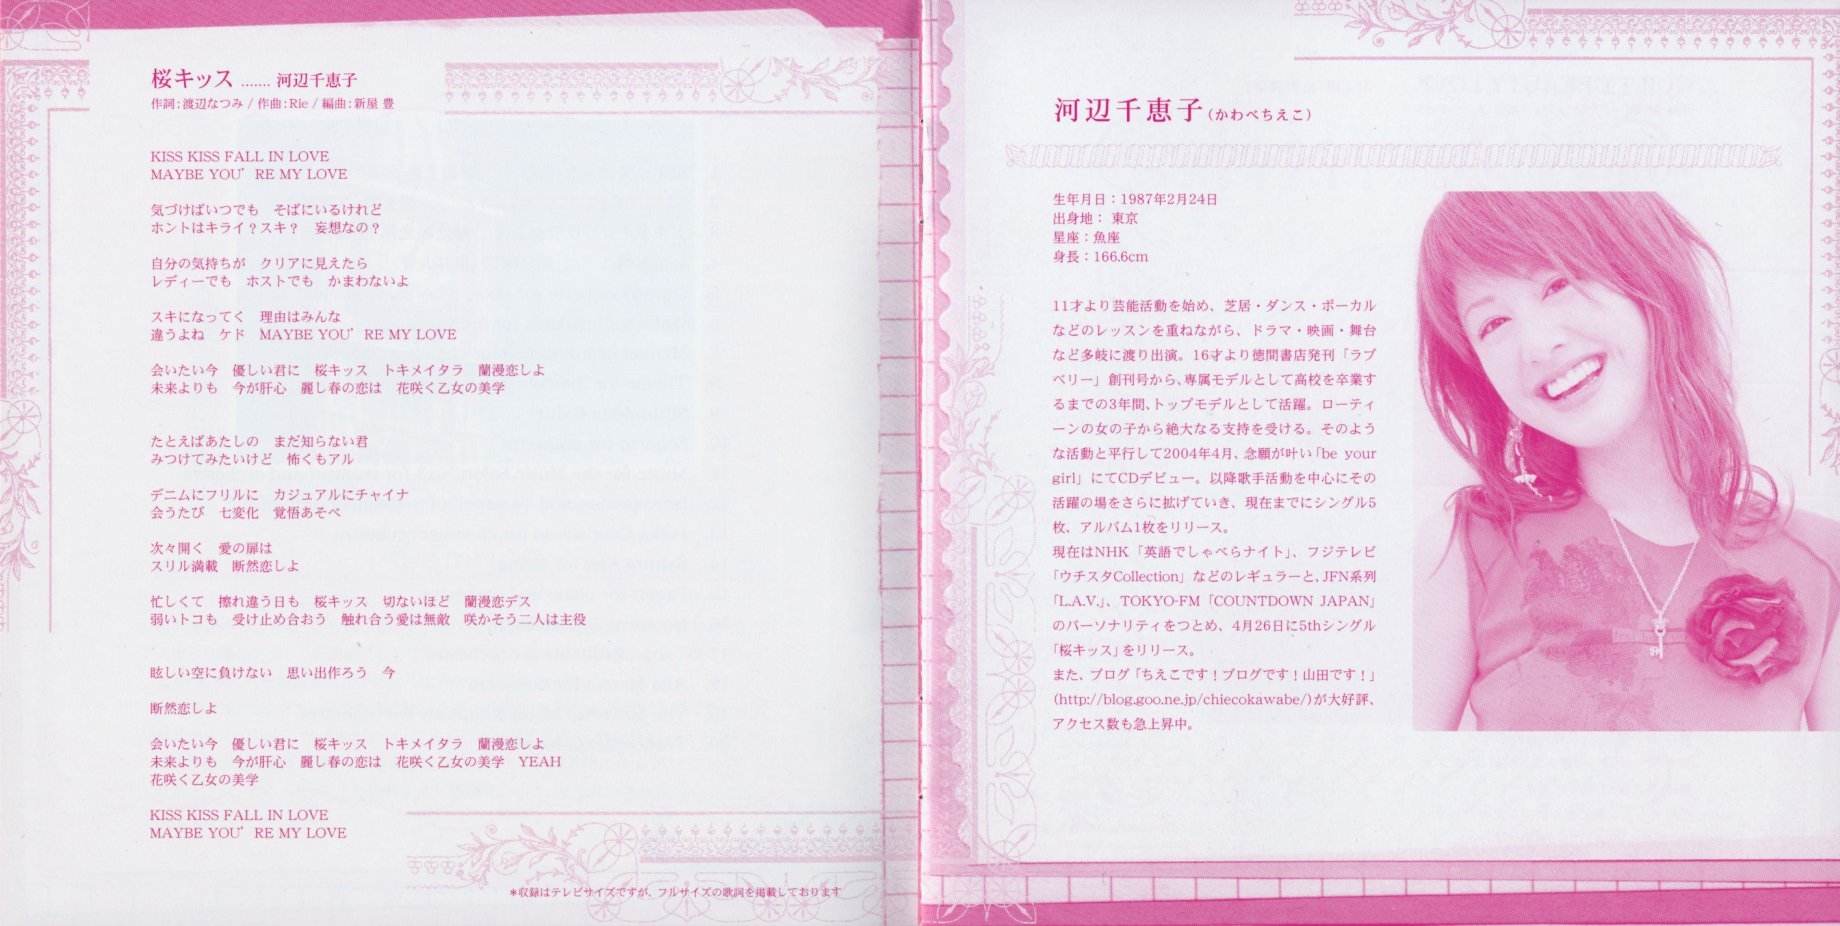 桜キッス ....... 河辺千恵子
作詞:渡辺なつみ / 作曲:Rie / 編曲:新屋 豊
KISS KISS FALL IN LOVE
MAYBE YOU'RE MY LOVE
気づけばいつでも　そばにいるけれど
ホントはキライ？スキ？　妄想なの？
自分の気持ちが　クリアに見えたら
レディーでも　ホストでも　かまわないよ
スキになってく　理由はみんな
違うよね　ケド　MAYBE YOU'RE MY LOVE
会いたい今　優しい君に　桜キッス　トキメイタラ　蘭漫恋しよ
未来よりも　今が肝心　麗し春の恋は　花咲く乙女の美学
たとえばあたしの　まだ知らない君
みつけてみたいけど　怖くもアル
デニムにフリルに　カジュアルにチャイナ
会うたび　七変化　覚悟あそべ
次々開く　愛の扉は
スリル満載　断然恋しよ
忙しくて　擦れ違う日も　桜キッス　切ないほど　蘭漫恋デス
弱いトコも　受け止め合おう　触れ合う愛は無敵　咲かそう二人は主役
眩しい空に負けない　思い出作ろう　今
断然恋しよ
会いたい今　優しい君に　桜キッス　トキメイタラ　蘭漫恋しよ
未来よりも　今が肝心　麗し春の恋は　花咲く乙女の美学　YEAH
花咲く乙女の美学
KISS KISS FALL IN LOVE
MAYBE YOU'RE MY LOVE
＊収録はテレビサイズですが、フルサイズの歌詞を掲載しております
河辺千恵子（かわべちえこ）
生年月日：1987年2月24日
出身地： 東京
星座：魚座
身長：166.6cm
11才より芸能活動を始め、芝居・ダンス・ボーカル
などのレッスンを重ねながら、ドラマ・映画・舞台
など多岐に渡り出演。16才より徳間書店発刊「ラブ
ベリー」創刊号から、専属モデルとして高校を卒業す
るまでの3年間、トップモデルとして活躍。ローティ
ーンの女の子から絶大なる支持を受ける。そのよう
な活動と平行して2004年4月、念願が叶い「be your
girl」にてCDデビュー。以降歌手活動を中心にその
活躍の場をさらに拡げていき、現在までにシングル5
枚、アルバム1枚をリリース。
現在はNHK「英語でしゃべらナイト」、フジテレビ
「ウチスタCollection」などのレギュラーと、JFN系列
「L.A.V.」、TOKYO-FM「COUNTDOWN JAPAN」
のパーソナリティをつとめ、4月26日に5thシングル
「桜キッス」をリリース。
また、ブログ「ちえこです！ブログです！山田です！」
（http://blog.goo.ne.jp/chiecokawabe/）が大好評、
アクセス数も急上昇中。